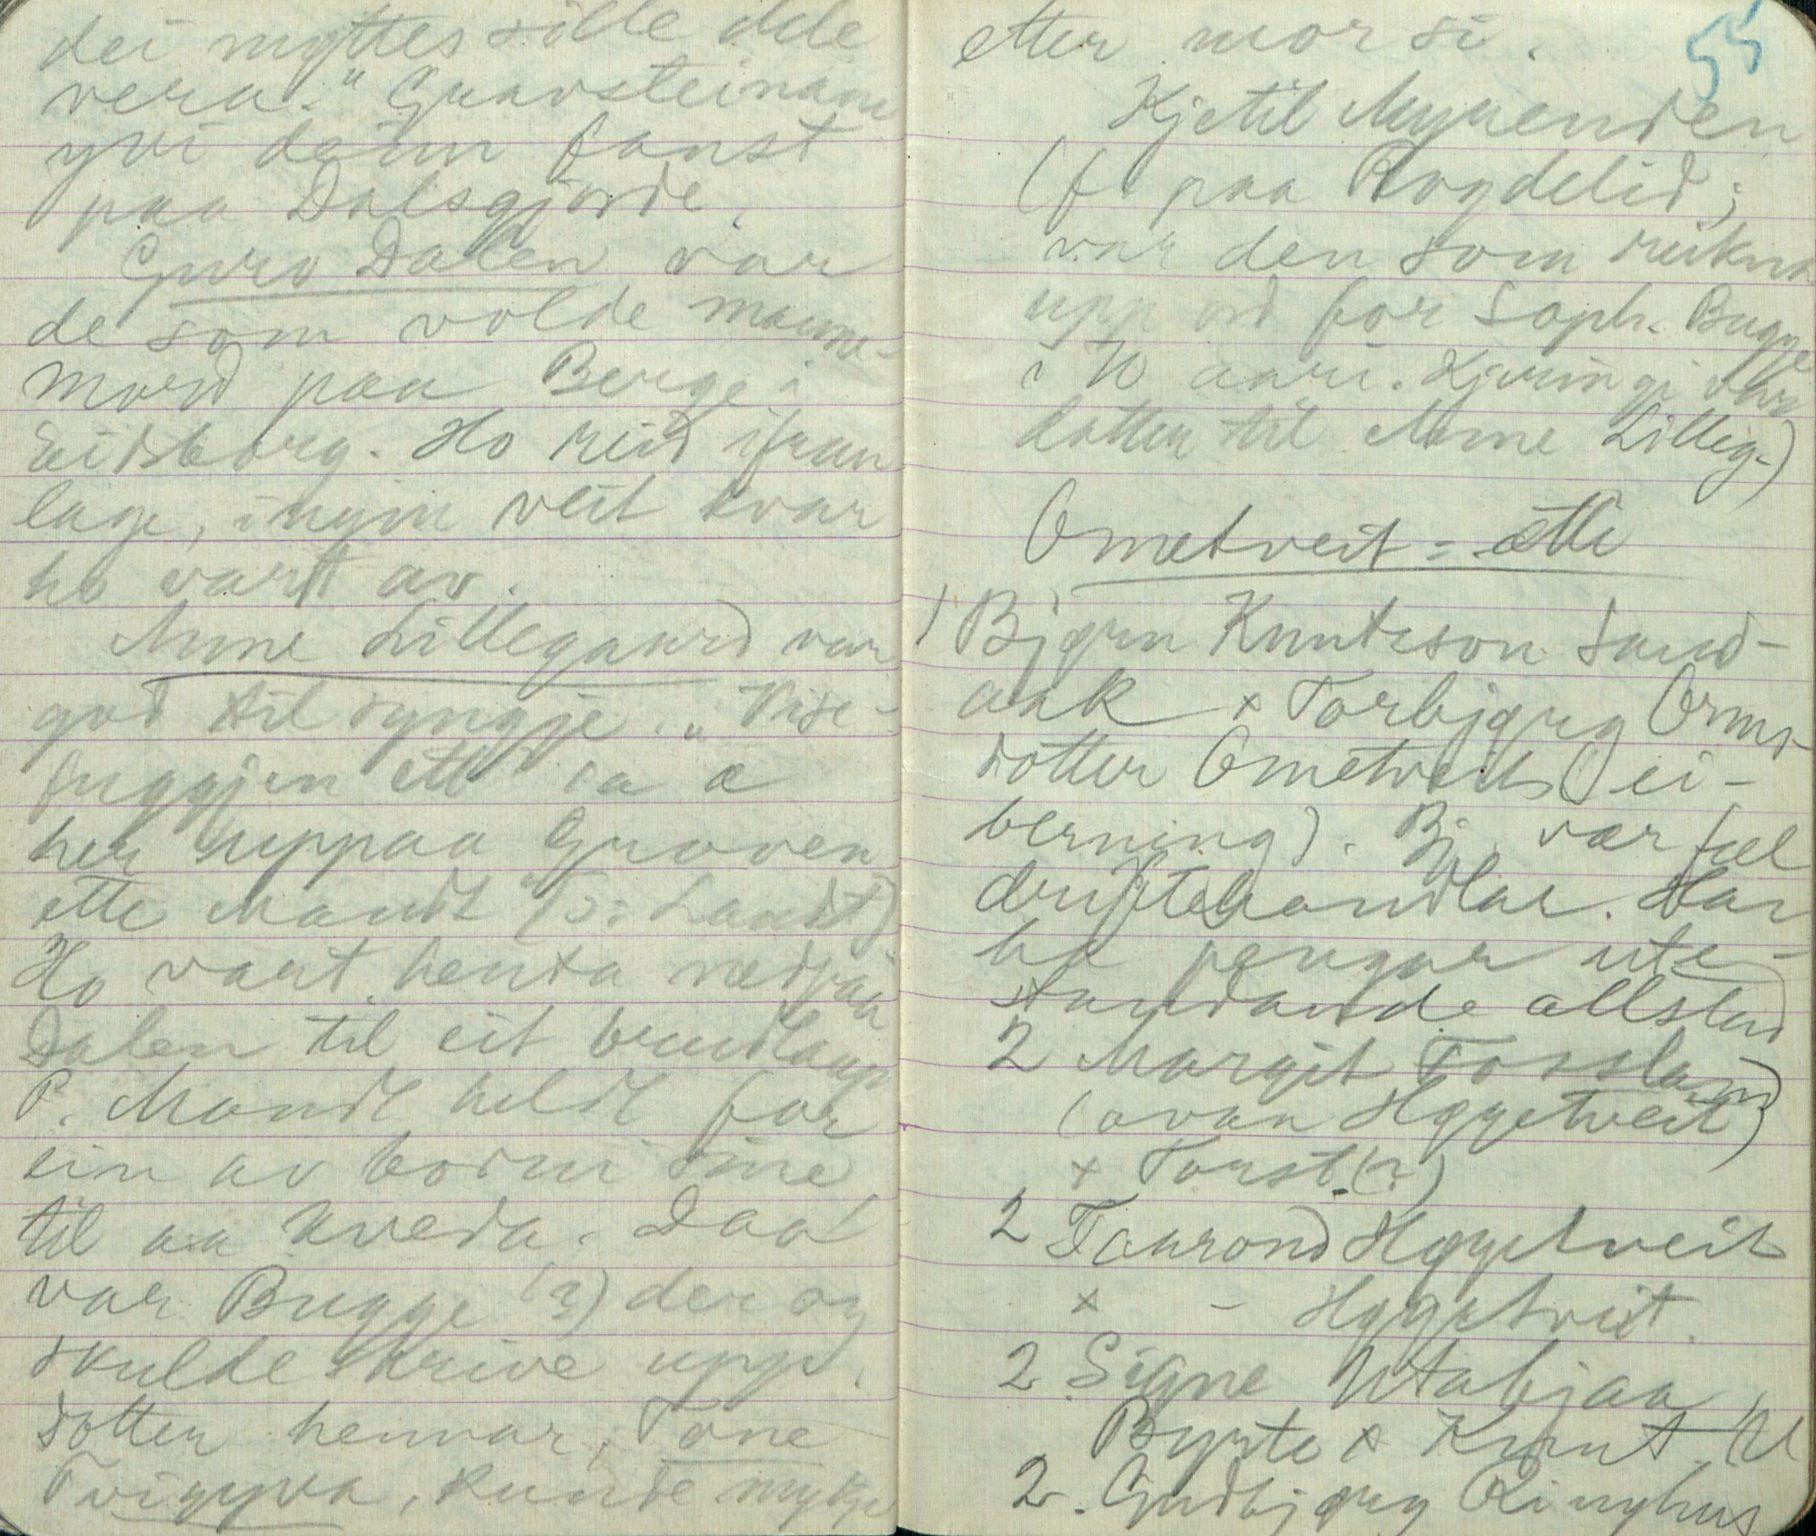 dei møttes sille dele
vera." Gravsteinann
yvi deim fanst
paa Dalsgjorde.
Guro Dalen var
de som volde manne-
mord paa Berge i
Eidsborg. Ho reid ifraa
lage, ingjin veit kvar
ho vart av.
Anne Lillegaard var
god til syngje. "Vise-
fuggjen ett sa æ
her uppaa Groven
ette Mandt" (ɔ: Landst)
Ho vart henta nedpaa
Dalen til eit brudlaup
P. Mandt heldt for
ein av borni sine
til aa kveda. Daa
var Bugge (?) der og
skulde skrive upp.
Dotter hennar, Tone
Tvigyva, kunde mykje
55
etter mor si.
Kjetil Myrenden
(f. paa Rogdelid;
var den som reikna
upp ord for Soph. Bugge
i 70 aari. Kjeringi var
dotter til Anne Lilleg.)
Ometveit-ætti
1 Bjørn Knutsson Sand-
aak x Torbjørg Orms-
dotter Ometveit (ei-
berning). Bj. var fæl
driftehandlar. Han
ha pengar ute-
standande allstad
2 Margit Fossland
(ovan Høgetveit)
x Torst. (?)
2 Taurond Høgetveit
x - Høgetveit.
2 Signe Utabjaa
Byrte x Knut U
2. Gudbjørg Ringhus